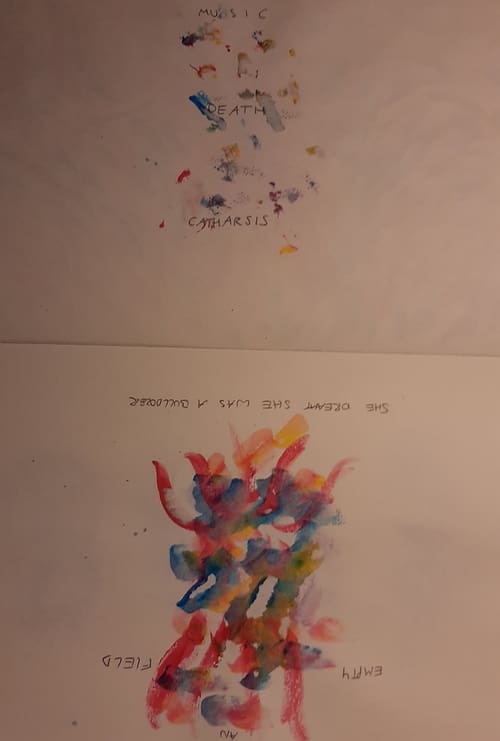 MUSIC
DEATH
CATHARSIS
SHE DREAMT SHE WAS A BULLDOZER
AN
EMPTY FIELD